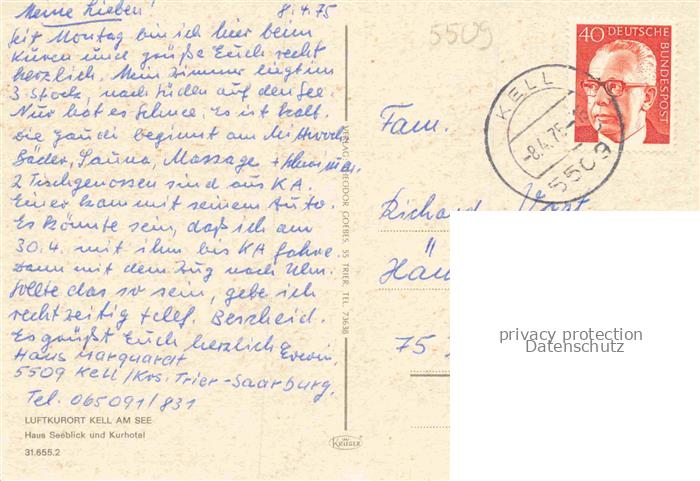 Meine Lieben! 8.4.75
Seit Montag bin ich hier beim
Kuren und grüße Euch recht
herzlich. Mein Zimmer liegt im
3. Stock, nach Süden auf den See.
Nur hat es Schnee. Es ist kalt.
Die Gaudi beginnt am Mittwoch
Bäder, Sauna, Massage + Schwimm.
2 Tischgenossen sind aus KA.
Einer kam mit seinem Auto.
Es könnte sein, daß ich am
30.4. mit ihm bis KA fahre.
Dann mit dem Zug nach Ulm.
Sollte das so sein, gebe ich
rechtzeitig telef. Bescheid.
Es grüßt Euch herzlich
Erwin,
Haus Marquardt
5509 Kell/Krs. Trier-Saarburg,
Tel. 065091/831
LUFTKURORT KELL AM SEE
Haus Seeblick und Kurhotel
31.655.2
VERLAG THEODOR GOEBES, 55 TRIER, TEL. 73638
KRÜGER
5509
40 DEUTSCHE
BUNDESPOST
KELL
-8.4.75
5509
Fam.
Richard
75
privacy protection
Datenschutz